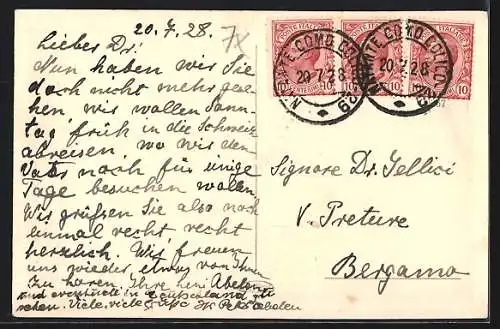 20.7.28.
Lieber Dr.!
Nun haben wir Sie
doch nicht mehr gese-
hen, wir wollen Sonn-
tag früh in die Schweiz
abreisen, wo wir den
noch für einige
Tage besuchen wollen.
Wir grüßen Sie also noch
einmal recht recht
herzlich. Wir freuen
uns wieder etwas von Ihnen
zu hören. Ihre
und eventuell in Deutschland zu
sehen. Viele, viele Grüße Ihr
POSTE ITALIANE
10
10
10
20.7.28
20.7.28
Signore Dr. Jellici
V. Preture
Bergamo